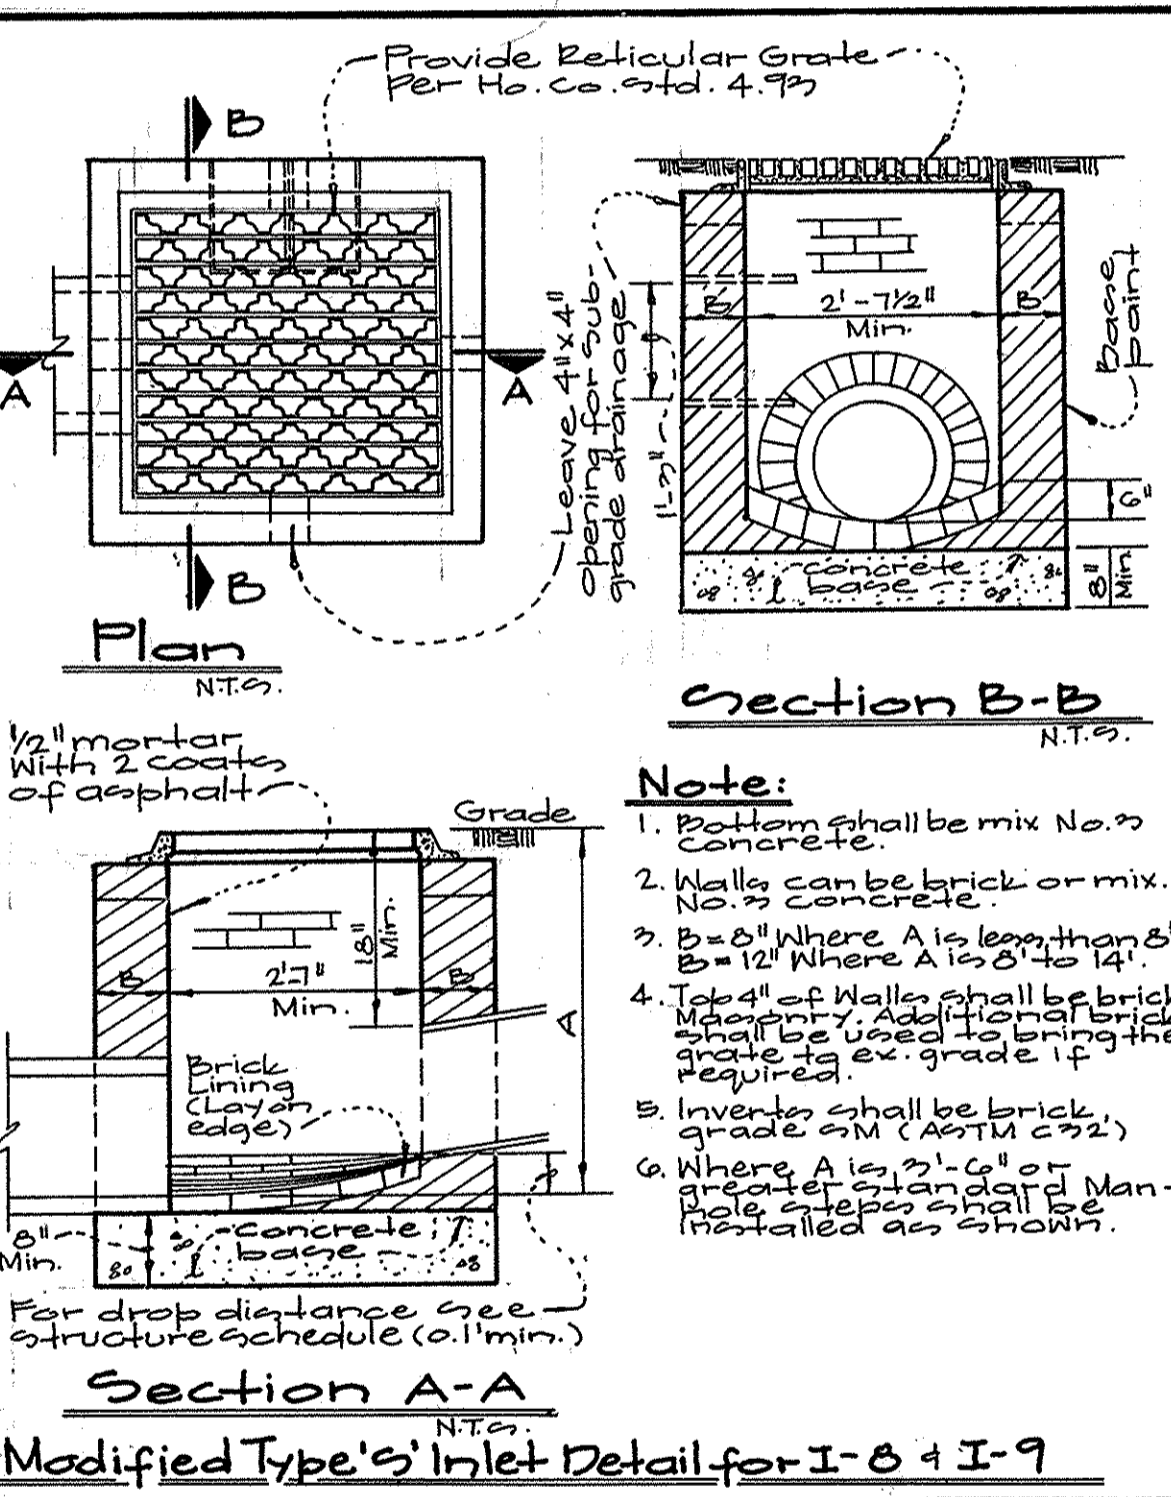 Provide Reticular Grate
Per Ho. Co. Std. 4.93
B
A
A
B
Plan
N.T.S.
Leave 4"x4"
opening for sub-
grade drainage
1'-3"
B
2'-7½"
Min.
B
Base
paint
6"
8"
Min
concrete
base
Section B-B
N.T.S.
1/2" mortar
With 2 coats
of asphalt
Grade
18"
Min.
B
2'-7"
Min.
B
A
Brick
Lining
(Lay on
edge)
8"
Min.
concrete
base
For drop distance see
structure schedule (0.1' min.)
Section A-A
N.T.S.
Note:
1. Bottom shall be mix No. 3
concrete.
2. Walls can be brick or mix.
No. 3 concrete.
3. B = 8" Where A is less than 8'
B = 12" Where A is 8' to 14'.
4. Top 4" of Walls shall be brick
Masonry. Additional brick
shall be used to bring the
grate to ex. grade if
required.
5. Inverts shall be brick,
grade SM (ASTM C32)
6. Where A is 3'-6" or
greater standard Man-
hole steps shall be
installed as shown.
Modified Type 'S' Inlet Detail for I-8 & I-9